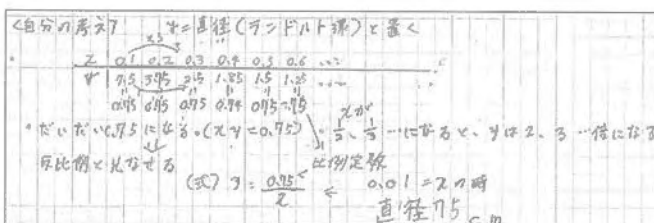 <自分の考え> y=直径(ランドルト環)と置く
×3
x 0.1 0.2 0.3 0.4 0.5 0.6 ...
y 7.5 3.75 2.5 1.85 1.5 1.25 ....
0.75 0.75 0.75 0.74 0.75 0.75
・だいだい0.75になる。(xy=0.75)
・xが1/2、1/3…になると、yは2、3…倍になる
反比例と見なせる
比例定数
(式) y=0.75/x ← 0.01=xの時
直径75cm